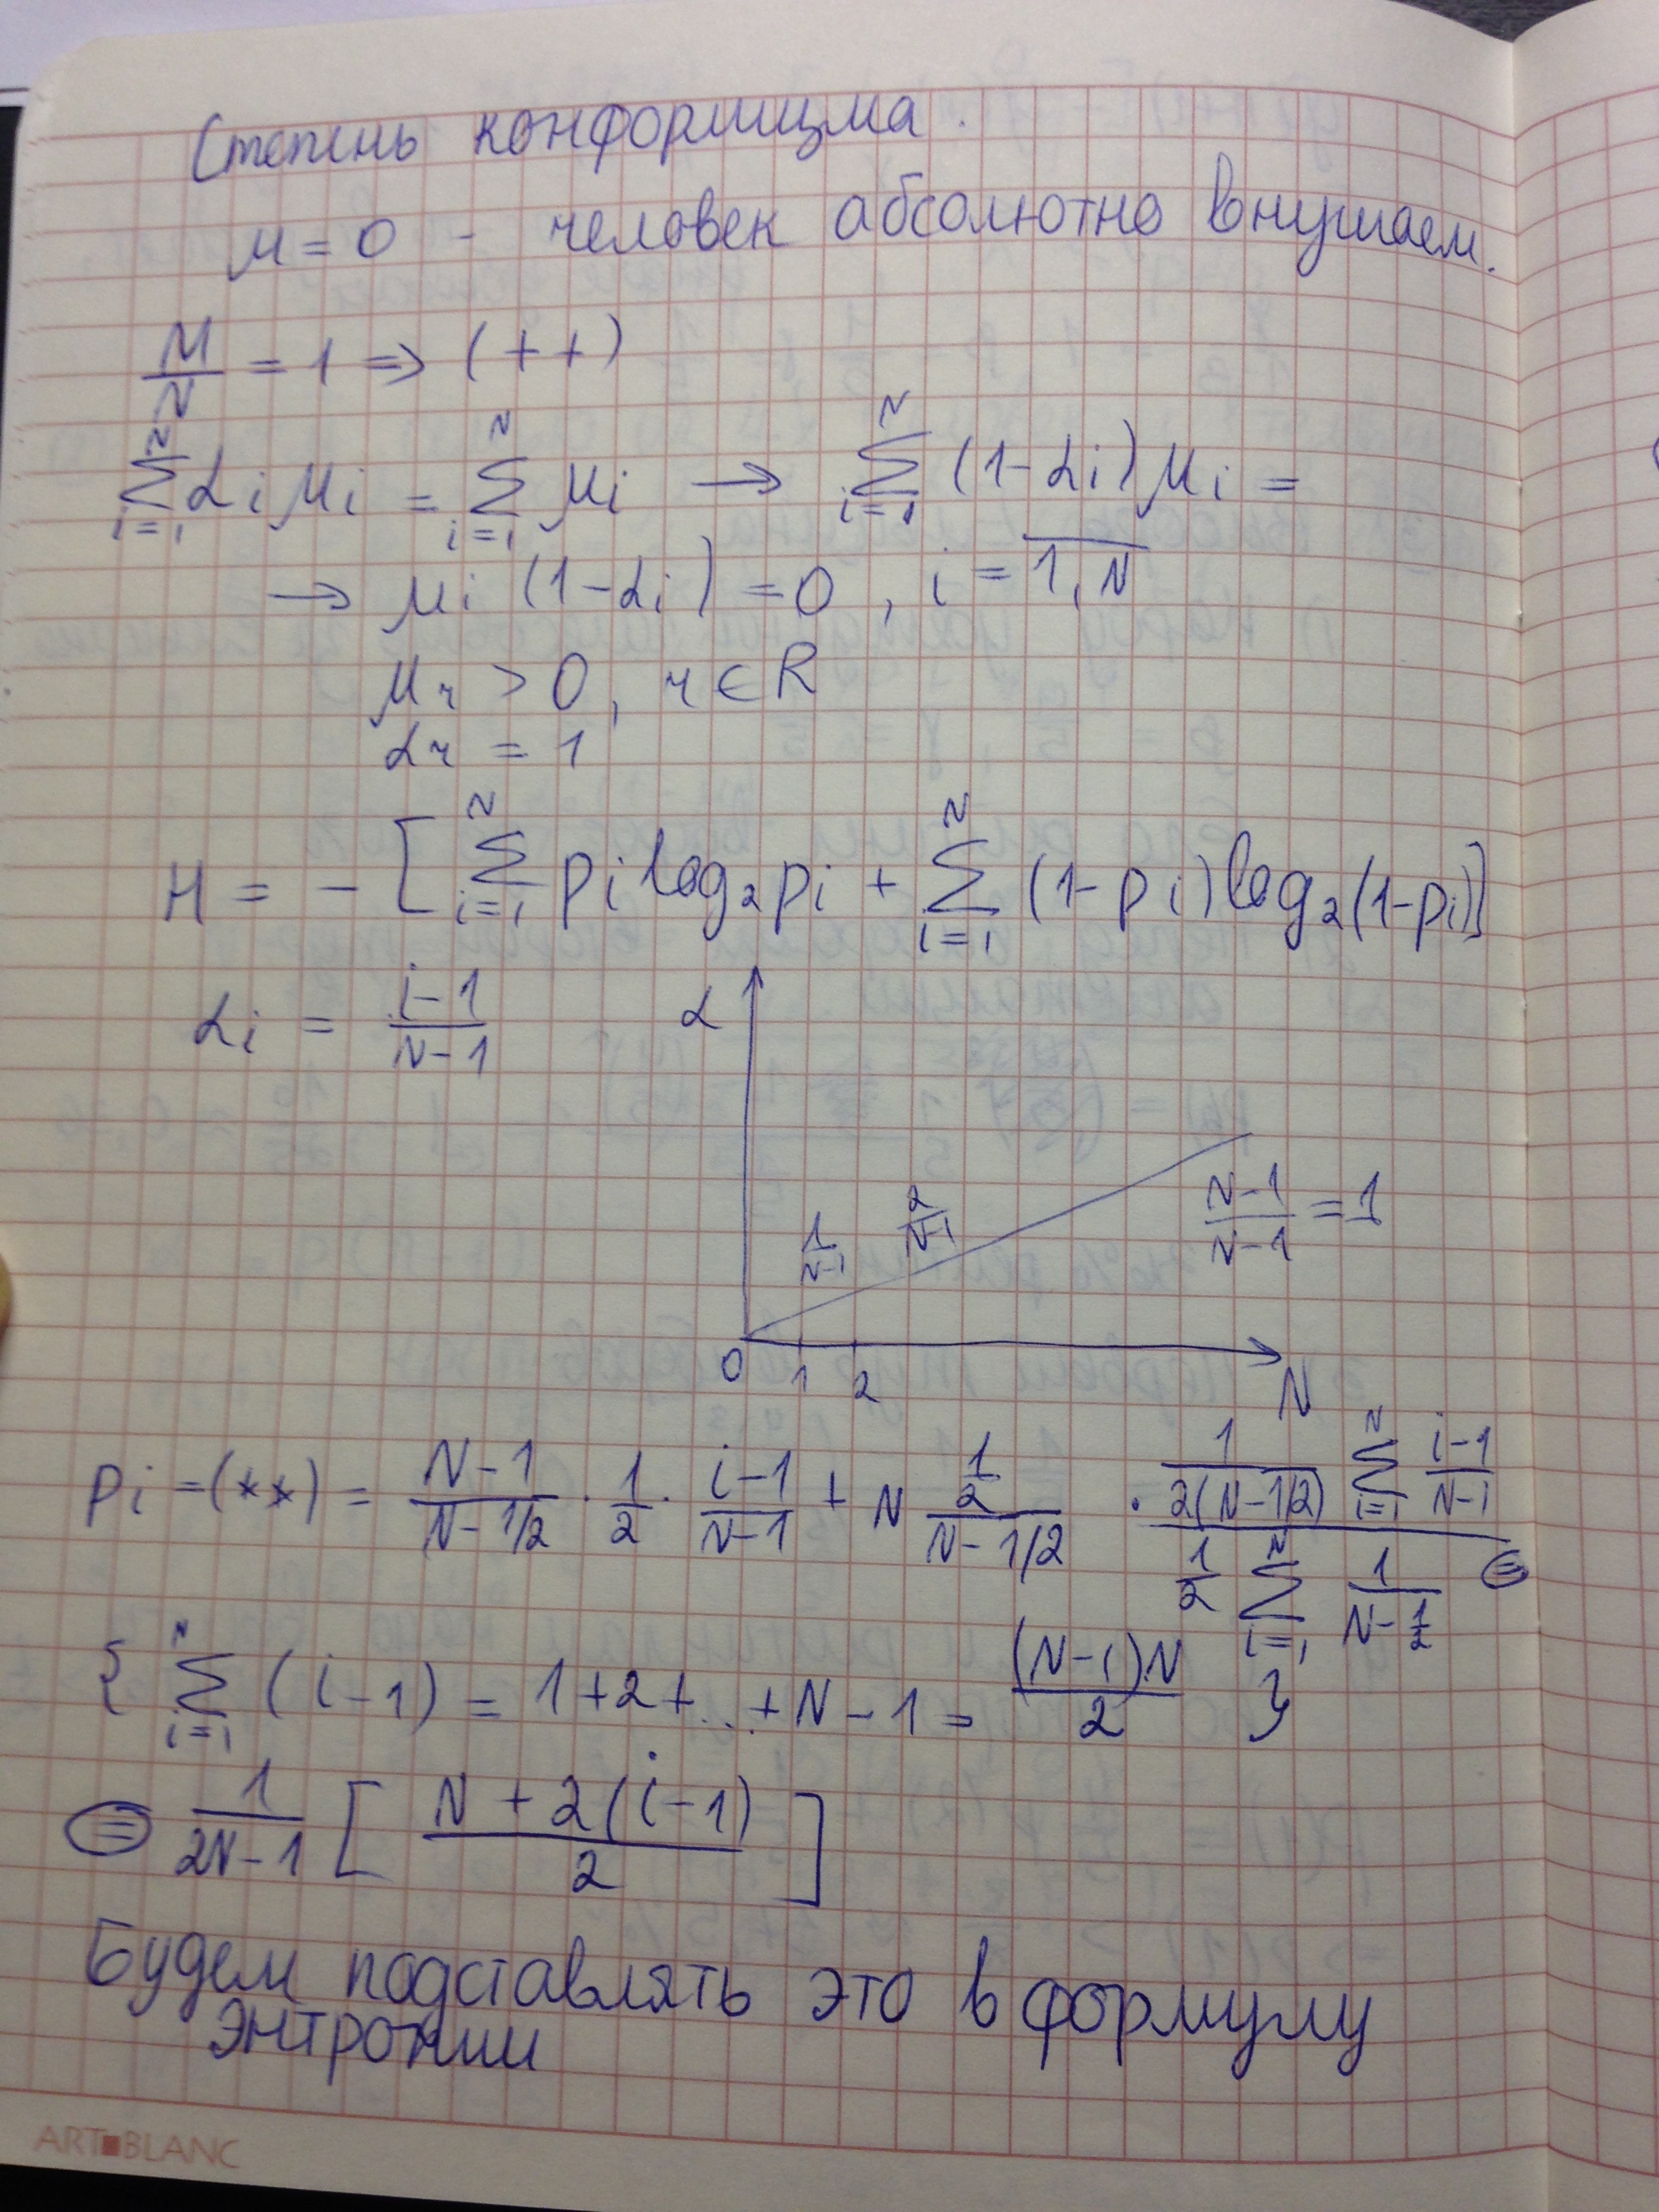 Степень конформизма.
μ = 0 - человек абсолютно внушаем.
M/N = 1 ⇒ (++)
∑_{i=1}^{N} αi μi = ∑_{i=1}^{N} μi → ∑_{i=1}^{N} (1-αi) μi =
→ μi (1-αi) = 0, i = \overline{1, N}
μr > 0, r ∈ R
αr = 1
H = - [∑_{i=1}^{N} pi log₂ pi + ∑_{i=1}^{N} (1-pi) log₂ (1-pi)]
αi = (i-1)/(N-1)
α
1/(N-1) 2/(N-1) (N-1)/(N-1) = 1
0 1 2 N
pi = (**) = (N-1)/(N-1/2) · 1/2 · (i-1)/(N-1) + N (1/2)/(N-1/2) · (1/(2(N-1/2)) ∑_{i=1}^{N} (i-1)/(N-1))/(1/2 ∑_{i=1}^{N} 1/(N-1/2)) ⊜
{ ∑_{i=1}^{N} (i-1) = 1+2+...+N-1 = (N-1)N/2 }
⊜ 1/(2N-1) [ (N+2(i-1))/2 ]
Будем подставлять это в формулу
энтропии
ART■BLANC